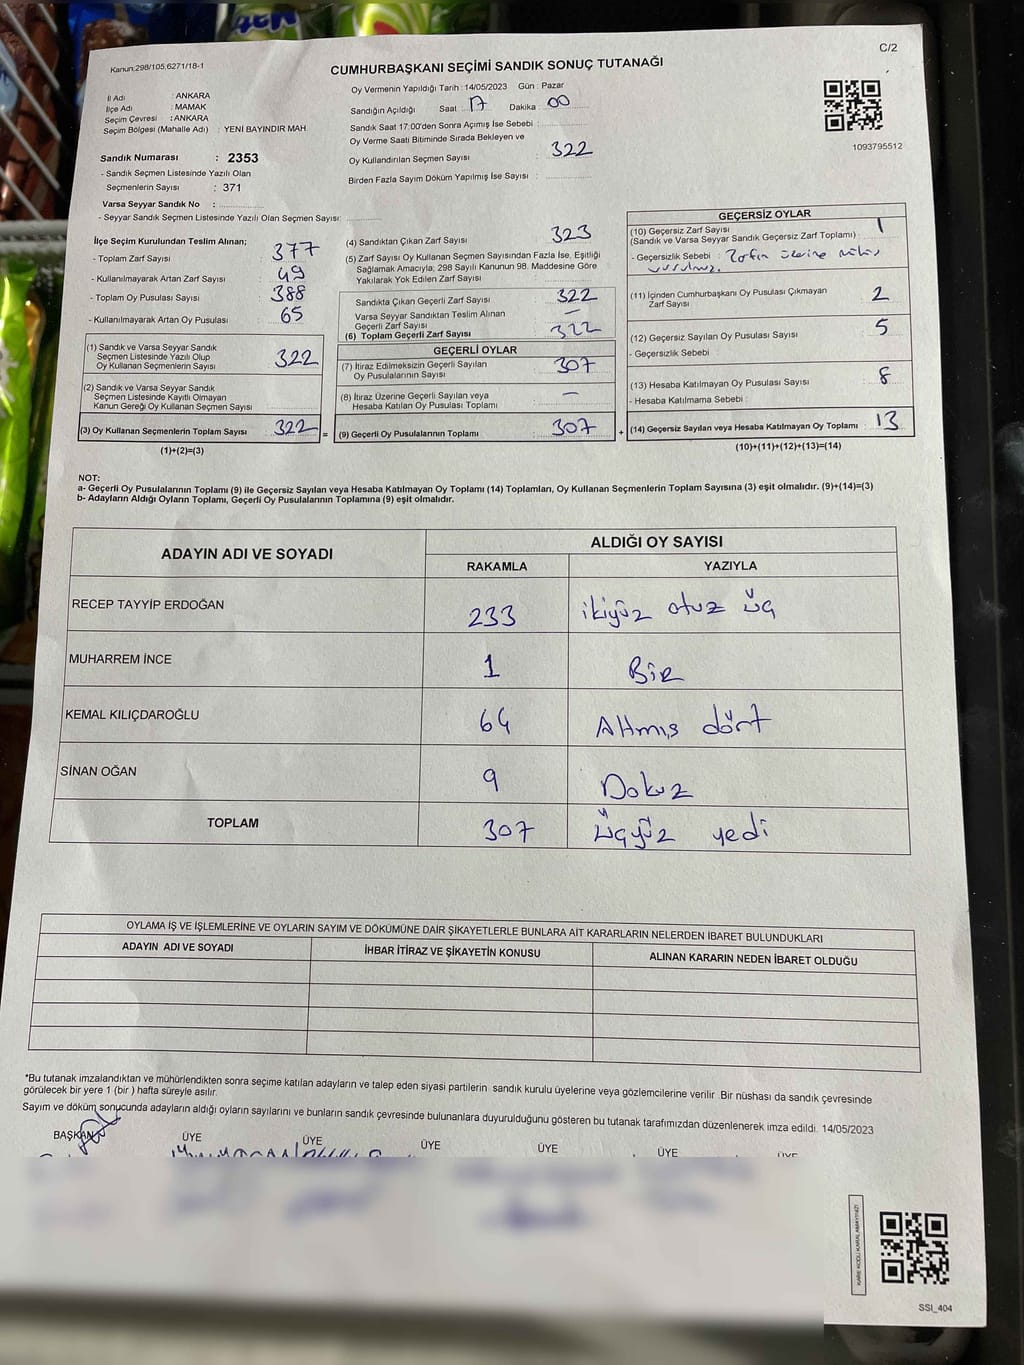 C/2
Kanun:298/105,6271/18-1
CUMHURBAŞKANI SEÇİMİ SANDIK SONUÇ TUTANAĞI
İl Adı : ANKARA
İlçe Adı : MAMAK
Seçim Çevresi : ANKARA
Seçim Bölgesi (Mahalle Adı) : YENİ BAYINDIR MAH.
Sandık Numarası : 2353
- Sandık Seçmen Listesinde Yazılı Olan
Seçmenlerin Sayısı : 371
Varsa Seyyar Sandık No :
- Seyyar Sandık Seçmen Listesinde Yazılı Olan Seçmen Sayısı:
Oy Vermenin Yapıldığı Tarih :14/05/2023 Gün : Pazar
Sandığın Açıldığı Saat : 17 Dakika : 00
Sandık Saat 17.00'den Sonra Açımış İse Sebebi :
Oy Verme Saati Bitiminde Sırada Bekleyen ve
Oy Kullandırılan Seçmen Sayısı : 322
Birden Fazla Sayım Döküm Yapılmış İse Sayısı :
1093795512
İlçe Seçim Kurulundan Teslim Alınan;
- Toplam Zarf Sayısı : 377
- Kullanılmayarak Artan Zarf Sayısı : 49
- Toplam Oy Pusulası Sayısı : 388
- Kullanılmayarak Artan Oy Pusulası : 65
(1) Sandık ve Varsa Seyyar Sandık
Seçmen Listesinde Yazılı Olup
Oy Kullanan Seçmenlerin Sayısı : 322
(2) Sandık ve Varsa Seyyar Sandık
Seçmen Listesinde Kayıtlı Olmayan
Kanun Gereği Oy Kullanan Seçmen Sayısı :
(3) Oy Kullanan Seçmenlerin Toplam Sayısı : 322
(1)+(2)=(3)
(4) Sandıktan Çıkan Zarf Sayısı : 323
(5) Zarf Sayısı Oy Kullanan Seçmen Sayısından Fazla İse, Eşitliği
Sağlamak Amacıyla; 298 Sayılı Kanunun 98. Maddesine Göre
Yakılarak Yok Edilen Zarf Sayısı :
Sandıkta Çıkan Geçerli Zarf Sayısı : 322
Varsa Seyyar Sandıktan Teslim Alınan
Geçerli Zarf Sayısı : —
(6) Toplam Geçerli Zarf Sayısı : 322
GEÇERLİ OYLAR
(7) İtiraz Edilmeksizin Geçerli Sayılan
Oy Pusulalarının Sayısı : 307
(8) İtiraz Üzerine Geçerli Sayılan veya
Hesaba Katılan Oy Pusulası Toplamı : —
= (9) Geçerli Oy Pusulalarının Toplamı : 307
GEÇERSİZ OYLAR
(10) Geçersiz Zarf Sayısı : 1
(Sandık ve Varsa Seyyar Sandık Geçersiz Zarf Toplamı)
- Geçersizlik Sebebi : Zarfın üzerine mühür
vurulmuş.
(11) İçinden Cumhurbaşkanı Oy Pusulası Çıkmayan
Zarf Sayısı : 2
(12) Geçersiz Sayılan Oy Pusulası Sayısı : 5
- Geçersizlik Sebebi
(13) Hesaba Katılmayan Oy Pusulası Sayısı : 8
- Hesaba Katılmama Sebebi :
+ (14) Geçersiz Sayılan veya Hesaba Katılmayan Oy Toplamı : 13
(10)+(11)+(12)+(13)=(14)
NOT:
a- Geçerli Oy Pusulalarının Toplamı (9) ile Geçersiz Sayılan veya Hesaba Katılmayan Oy Toplamı (14) Toplamları, Oy Kullanan Seçmenlerin Toplam Sayısına (3) eşit olmalıdır. (9)+(14)=(3)
b- Adayların Aldığı Oyların Toplamı, Geçerli Oy Pusulalarının Toplamına (9) eşit olmalıdır.
ADAYIN ADI VE SOYADI
ALDIĞI OY SAYISI
RAKAMLA YAZIYLA
RECEP TAYYİP ERDOĞAN 233 ikiyüz otuz üç
MUHARREM İNCE 1 Bir
KEMAL KILIÇDAROĞLU 64 Altmış dört
SİNAN OĞAN 9 Dokuz
TOPLAM 307 üçyüz yedi
OYLAMA İŞ VE İŞLEMLERİNE VE OYLARIN SAYIM VE DÖKÜMÜNE DAİR ŞİKAYETLERLE BUNLARA AİT KARARLARIN NELERDEN İBARET BULUNDUKLARI
ADAYIN ADI VE SOYADI İHBAR İTİRAZ VE ŞİKAYETİN KONUSU ALINAN KARARIN NEDEN İBARET OLDUĞU
*Bu tutanak imzalandıktan ve mühürlendikten sonra seçime katılan adayların ve talep eden siyasi partilerin sandık kurulu üyelerine veya gözlemcilerine verilir. Bir nüshası da sandık çevresinde
görülecek bir yere 1 (bir ) hafta süreyle asılır.
Sayım ve döküm sonucunda adayların aldığı oyların sayılarını ve bunların sandık çevresinde bulunanlara duyurulduğunu gösteren bu tutanak tarafımızdan düzenlenerek imza edildi. 14/05/2023
BAŞKAN ÜYE ÜYE ÜYE ÜYE ÜYE ÜYE
KARE KODU KARALAMAYINIZ!
SSI_404